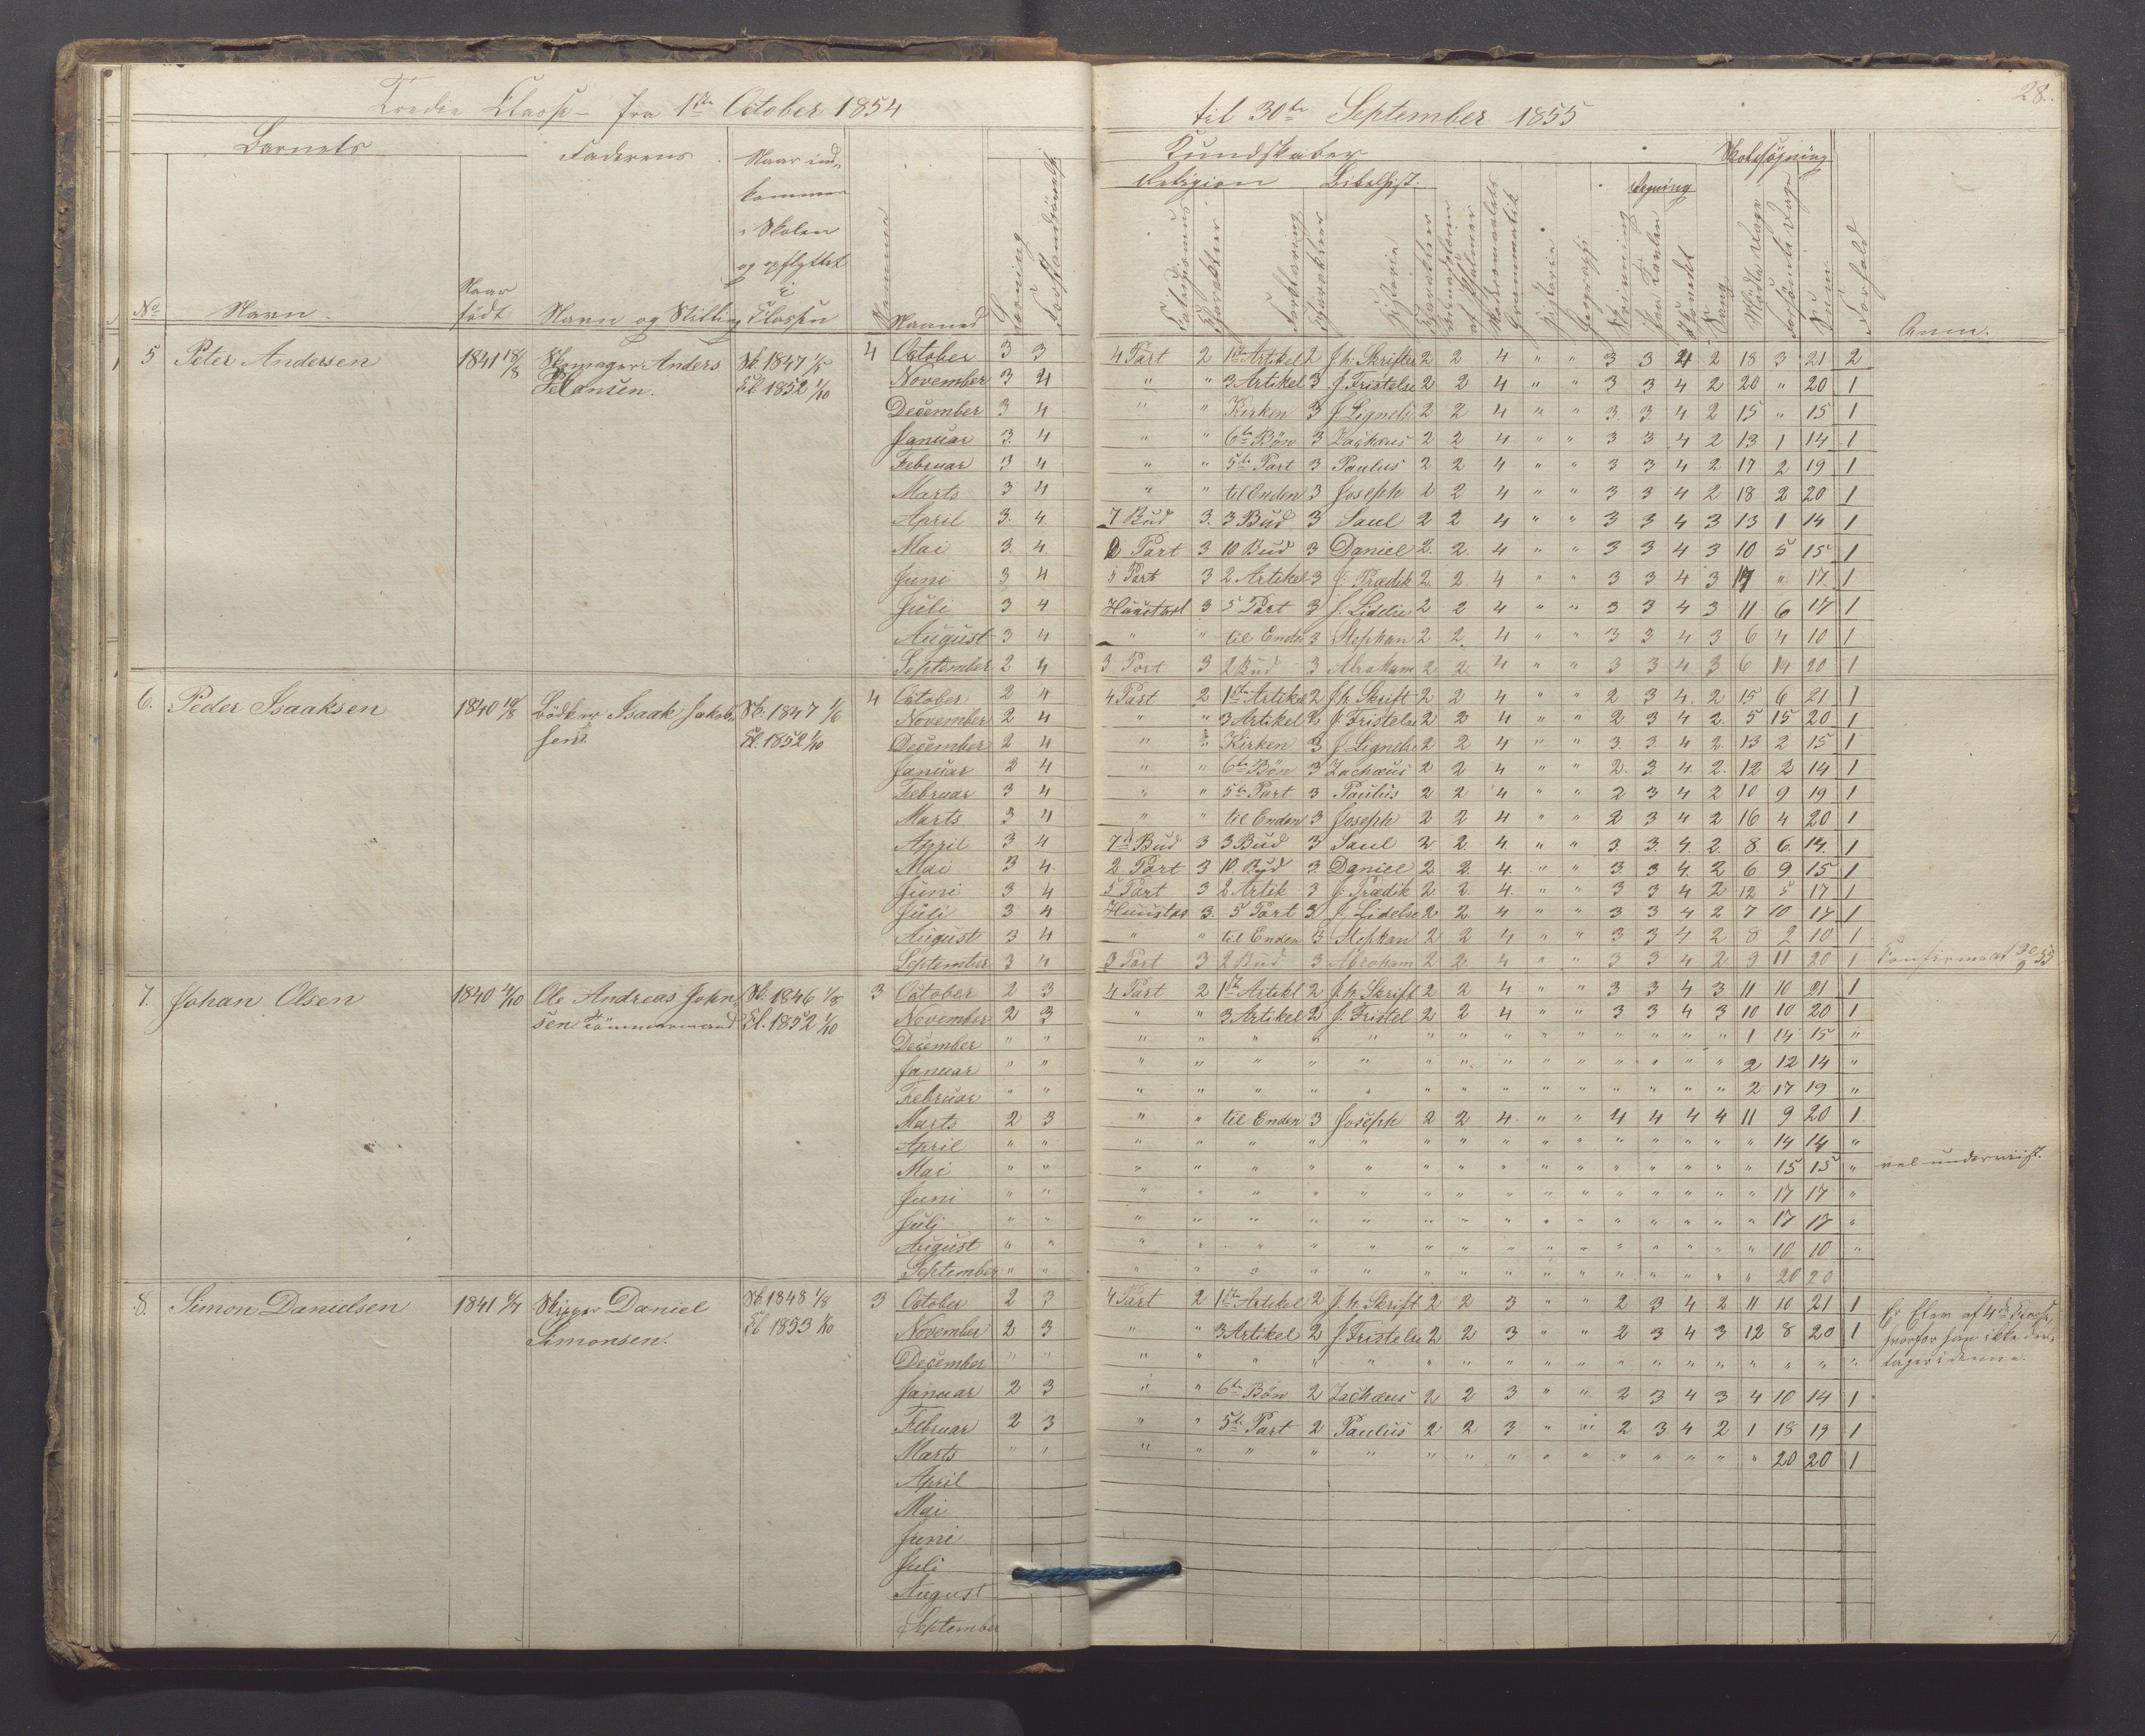 Tredie Classe - fra 1ste October 1854
til 30te September 1855
28.
Barnets
Faderens
Naar ind-
kommen
i Skolen
og opflyttet
i
Classen
No
Navn
Naar
født
Navn og Stilling
Evnerne
Maaned
Læsning
Kundskaber
Religion
Bibelhist.
Catechismus
Karakter
Forklaring
Charakter
Historie
Karakter
Modersmaalets
Grammatik
Historie
Geografi
Skrivning
Regning
paa Tavlen
i Hovedet
Sang
Skolesøgning
Mødte Dage
Forsømte Dage
Sum
Forhold
Anm.
5 Peter Andersen 1841 18/8 Skomager Anders Sk. 1847 1/5 4 October 3 3 4 Part 2 1ste Artikel 2 J. h. Skrifter 2 2 4 " " 3 3 4 2 18 3 21 2
Pedersen. Cl. 1852 1/10 November 3 4 " " 3 Artikel 3 J. Fristelse 2 2 4 " " 3 3 4 2 20 " 20 1
December 3 4 " " Kirken 3 J. Lignels 2 2 4 " " 3 3 4 2 15 " 15 1
Januar 3 4 " " 6te Bøn 3 Zachæus 2 2 4 " " 3 3 4 2 13 1 14 1
Februar 3 4 " " 5te Part 3 Paulus 2 2 4 " " 3 3 4 2 17 2 19 1
Marts 3 4 " " til Enden 3 Joseph 2 2 4 " " 3 3 4 2 18 2 20 1
April 3. 4. 7 Bud 3. 3 Bud 3 Saul 2 2 4 " " 3 3 4 3 13 1 14 1
Mai 3. 4. 2 Part 3 10 Bud 3 Daniel 2. 2. 4 " " 3 3 4 3 10 5 15 1
Juni 3 4 5 Part 3 2 Artikel 3 J. Prædik 2. 2. 4 " " 3 3 4 3 17 " 17 1
Juli 3 4 Huustavl 3 5 Part 3 J. Lidelse 2 2 4 " " 3 3 4 3 11 6 17 1
August 3 4 " " til Enden 3 Stephan 2 2. 4 " " 3 3 4 3 6 4 10 1
September 2 4 3 Part 3 2 Bud 3 Abraham 2 2 4 " " 3 3 4 3 6 14 20 1
6. Peder Isaaksen 1840 19/8 Bødker Isaak Jakob- Sk. 1847 1/6 4 October 2 4 4 Part 2 1ste Artikel 2 J. h. Skrift 2 2 4 " " 2 3 4. 2 15 6 21 1
sen. Cl. 1852 1/10 November 2 4 " " 3 Artikel 2 J. Fristelse 2 2 4 " " 2 3 4 2. 5 15 20 1
December 2 4 " " Kirken 3 J. Lignelse 2 2 4 " " 3. 3. 4 2. 13 2 15 1
Januar 2 4 " " 6te Bøn 3 Zachæus 2 2 4 " " 2. 3 4. 2. 12 2 14 1
Februar 3 4 " " 5te Part 3 Paulus 2 2 4 " " 2 3 4 2 10 9 19 1
Marts 3 4 " " til Enden 3 Joseph 2 2 4 " " 2 3 4 2 16 4 20 1
April 3 4 7de Bud 3 3 Bud 3 Saul 2 2. 4. " " 3 3. 4. 2. 8. 6. 14. 1
Mai 3 4. 2 Part 3 10. Bud 3. Daniel 2. 2. 4. " " 3. 3 4. 2 6 9 15 1
Juni 3 4 5 Part 3 2 Artik 3 J. Prædik 2. 2. 4. " " 3 3 4 2 12 5 17 1
Juli 3 4 Huustav 3. 5 Part 3 J. Lidelse 2 2 4 " " 3 3 4 2 7 10 17 1
August 3 4 " " til Enden 3 Stephan 2 2 4 " " 3 3 4 2 8 2 10 1
September 3 4 3 Part 3 2 Bud 3 Abraham 2 2. 4 " " 3 3 4 2 9 11 20 1 Confirmeret
7. Johan Olsen 1840 4/10 Ole Andreas John- Sk. 1846 1/8 3 October 2 3 4 Part 2 1ste Artikl 2 J. h. Skrift 2 2 4 " " 3 3 4 3 11 10 21 1
sen Tømmermand Cl. 1852 1/10 November 2 3 " " 3 Artikel 2 J. Fristel 2 2 4 " " 3 3 4 3 10 10 20 1
December " " " " " " " " " " " " " " " " 1 14 15 "
Januar " " " " " " " " " " " " " " " " 2 12 14 "
Februar " " " " " " " " " " " " " " " " 2 17 19 "
Marts 2 3 " " til Enden 3 Joseph 2 2 4 " " 4 4 4 4 11 9 20 1
April " " " " " " " " " " " " " " " " " 14 14 "
Mai " " " " " " " " " " " " " " " " " 15 15 " vel underviist.
Juni " " " " " " " " " " " " " " " " " 17 17 "
Juli " " " " " " " " " " " " " " " " " 17 17 "
August " " " " " " " " " " " " " " " " " 10 10 "
September " " " " " " " " " " " " " " " " " 20 20
8. Simon Danielsen 1841 Skipper Daniel Sk. 1848 1/8 3 October 2 3 4 Part 2 1ste Artikel 2 J. h. Skrift 2 2 3 " " 2 3 4 2 11 10 21 1 Er Elev af 4de Classe,
Simonsen. Cl. 1853 1/10 November 2 3 " " 3 Artikel 2 J. Fristelse 2 2 3 " " 2 3 4 3 12 8 20 1 hvorfor han ikke del-
December " " " " " " " " " " " " " " " " " " " " tager i denne.
Januar 2 3 " " 6te Bøn 2 Zachæus 2 2 3 " " 2 3 4 3 4 10 14 1
Februar 2 3 " " 5te Part 2 Paulus 2 2 3 " " 2 3 4 2 1 18 19 1
Marts " " " " " " " " " " " " " " " " " 20 20 1
April
Mai
Juni
Juli
August
September